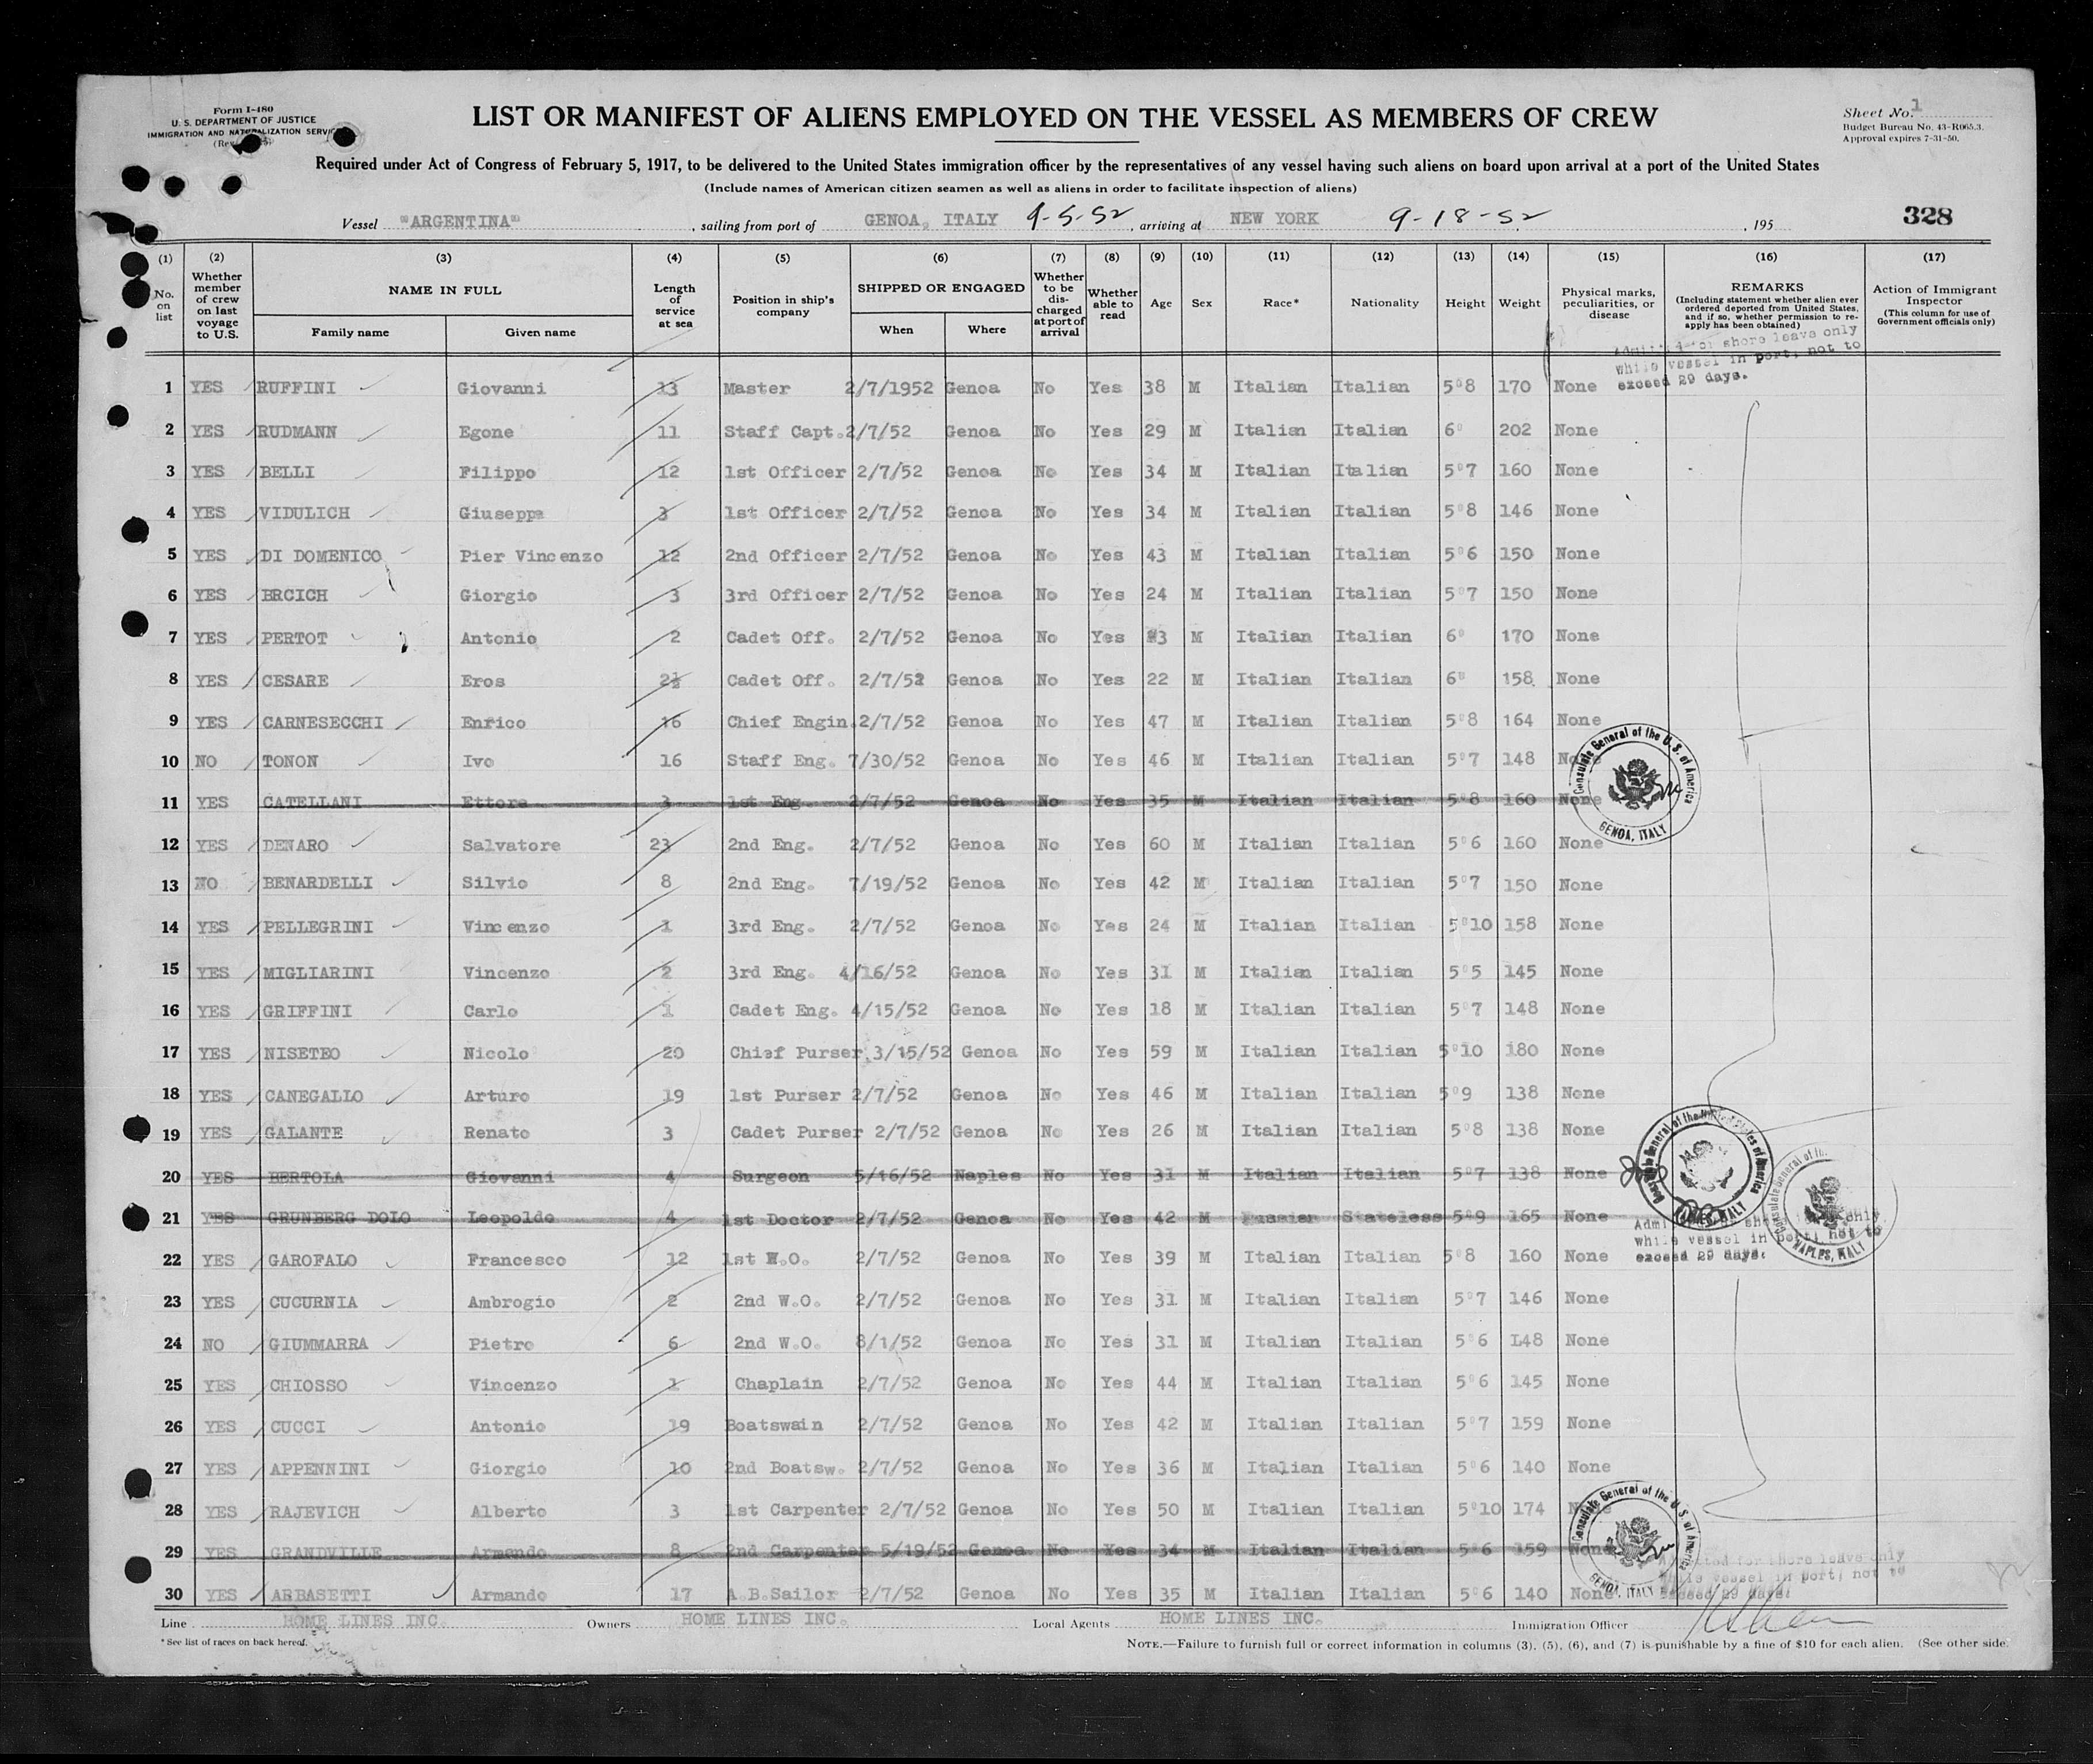 Form I-480
U. S. DEPARTMENT OF JUSTICE
IMMIGRATION AND NATURALIZATION SERVICE
LIST OR MANIFEST OF ALIENS EMPLOYED ON THE VESSEL AS MEMBERS OF CREW
Sheet No. 1
Budget Bureau No. 43-R065.3.
Approval expires 7-31-50.
Required under Act of Congress of February 5, 1917, to be delivered to the United States immigration officer by the representatives of any vessel having such aliens on board upon arrival at a port of the United States
(Include names of American citizen seamen as well as aliens in order to facilitate inspection of aliens)
Vessel "ARGENTINA", sailing from port of GENOA, ITALY 9-5-52, arriving at NEW YORK 9-18-52, 195
328
(1) (2) (3) (4) (5) (6) (7) (8) (9) (10) (11) (12) (13) (14) (15) (16) (17)
No. on list
Whether member of crew on last voyage to U.S.
NAME IN FULL
Family name Given name
Length of service at sea
Position in ship's company
SHIPPED OR ENGAGED
When Where
Whether to be discharged at port of arrival
Whether able to read
Age
Sex
Race*
Nationality
Height
Weight
Physical marks, peculiarities, or disease
REMARKS
(Including statement whether alien ever ordered deported from United States, and if so, whether permission to re-apply has been obtained)
Action of Immigrant Inspector
(This column for use of Government officials only)
Admitted for shore leave only
while vessel in port, not to
exceed 29 days.
1 YES RUFFINI Giovanni 13 Master 2/7/1952 Genoa No Yes 38 M Italian Italian 5'8 170 None
2 YES RUDMANN Egone 11 Staff Capt. 2/7/52 Genoa No Yes 29 M Italian Italian 6' 202 None
3 YES BELLI Filippo 12 1st Officer 2/7/52 Genoa No Yes 34 M Italian Italian 5'7 160 None
4 YES VIDULICH Giuseppe 3 1st Officer 2/7/52 Genoa No Yes 34 M Italian Italian 5'8 146 None
5 YES DI DOMENICO Pier Vincenzo 12 2nd Officer 2/7/52 Genoa No Yes 43 M Italian Italian 5'6 150 None
6 YES BRCICH Giorgio 3 3rd Officer 2/7/52 Genoa No Yes 24 M Italian Italian 5'7 150 None
7 YES PERTOT Antonio 2 Cadet Off. 2/7/52 Genoa No Yes 23 M Italian Italian 6' 170 None
8 YES CESARE Eros 2½ Cadet Off. 2/7/52 Genoa No Yes 22 M Italian Italian 6' 158 None
9 YES CARNESECCHI Enrico 16 Chief Engin. 2/7/52 Genoa No Yes 47 M Italian Italian 5'8 164 None
10 NO TONON Ivo 16 Staff Eng. 7/30/52 Genoa No Yes 46 M Italian Italian 5'7 148 None
11 YES CATELLANI Ettore 3 1st Eng. 2/7/52 Genoa No Yes 35 M Italian Italian 5'8 160 None
Consulate General of the U. S. of America
GENOA, ITALY
12 YES DENARO Salvatore 23 2nd Eng. 2/7/52 Genoa No Yes 60 M Italian Italian 5'6 160 None
13 NO BENARDELLI Silvio 8 2nd Eng. 7/19/52 Genoa No Yes 42 M Italian Italian 5'7 150 None
14 YES PELLEGRINI Vincenzo 1 3rd Eng. 2/7/52 Genoa No Yes 24 M Italian Italian 5'10 158 None
15 YES MIGLIARINI Vincenzo 2 3rd Eng. 4/16/52 Genoa No Yes 31 M Italian Italian 5'5 145 None
16 YES GRIFFINI Carlo 1 Cadet Eng. 4/15/52 Genoa No Yes 18 M Italian Italian 5'7 148 None
17 YES NISETEO Nicolo 20 Chief Purser 3/15/52 Genoa No Yes 59 M Italian Italian 5'10 180 None
18 YES CANEGALLO Arturo 19 1st Purser 2/7/52 Genoa No Yes 46 M Italian Italian 5'9 138 None
19 YES GALANTE Renato 3 Cadet Purser 2/7/52 Genoa No Yes 26 M Italian Italian 5'8 138 None
20 YES BERTOLA Giovanni 4 Surgeon 5/16/52 Naples No Yes 31 M Italian Italian 5'7 138 None
21 YES GRUNBERG DOLO Leopoldo 4 1st Doctor 2/7/52 Genoa No Yes 42 M Stateless 5'9 165 None
Consulate General of the
NAPLES, ITALY
while vessel in port, not to
exceed 29 days.
22 YES GAROFALO Francesco 12 1st W.O. 2/7/52 Genoa No Yes 39 M Italian Italian 5'8 160 None
23 YES CUCURNIA Ambrogio 2 2nd W.O. 2/7/52 Genoa No Yes 31 M Italian Italian 5'7 146 None
24 NO GIUMMARRA Pietro 6 2nd W.O. 8/1/52 Genoa No Yes 31 M Italian Italian 5'6 148 None
25 YES CHIOSSO Vincenzo 1 Chaplain 2/7/52 Genoa No Yes 44 M Italian Italian 5'6 145 None
26 YES CUCCI Antonio 19 Boatswain 2/7/52 Genoa No Yes 42 M Italian Italian 5'7 159 None
27 YES APPENNINI Giorgio 10 2nd Boatsw. 2/7/52 Genoa No Yes 36 M Italian Italian 5'6 140 None
28 YES RAJEVICH Alberto 3 1st Carpenter 2/7/52 Genoa No Yes 50 M Italian Italian 5'10 174 None
29 YES GRANDVILLE Armando 8 2nd Carpenter 5/19/52 Genoa No Yes 34 M Italian Italian 5'6 159 None
Consulate General of the U. S. of America
GENOA, ITALY
Admitted for shore leave only
while vessel in port, not to
exceed 29 days.
30 YES ARBASETTI Armando 17 A.B.Sailor 2/7/52 Genoa No Yes 35 M Italian Italian 5'6 140 None
Line HOME LINES INC. Owners HOME LINES INC. Local Agents HOME LINES INC. Immigration Officer
* See list of races on back hereof.
NOTE.—Failure to furnish full or correct information in columns (3), (5), (6), and (7) is punishable by a fine of $10 for each alien. (See other side.